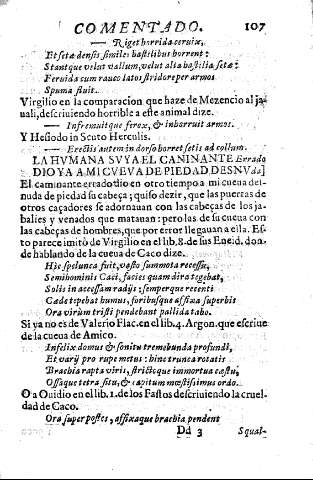 COMENTADO. 107
— Riget horrida ceruix,
Et setæ densis simile: hastilibus horrent:
Stantque velut vallum, velut alta hastilia setæ:
Feruida cum rauco latos stridore per armos
Spuma fluit.
Virgilio en la comparacion que haze de Mezencio al ja
uali, descriuiendo horrible a este animal dize.
— Infremuitque ferox, & inhorruit armos.
Y Hesiodo in Scuto Herculis.
— Erectis autem in dorso horret setis ad collum.
LA HVMANA SVYA EL CAMINANTE Errado
DIO YA A MI CVEVA DE PIEDAD DESNVda]
El caminante errado dio en otro tiempo a mi cueua des-
nuda de piedad su cabeça; quiso dezir, que las puertas de
otros caçadores se adornauan con las cabeças de los ja-
balies y venados que matauan: pero las de su cueua con
las cabeças de hombres, que por error llegauan a ella. Es-
to parece imitò de Virgilio en el lib. 8. de sus Eneid. don-
de hablando de la cueua de Caco dize.
Hic spelunca fuit, vasto summota recessu,
Semihominis Caci, facies quam dira tegebat,
Solis in accessam radijs: semperque recenti
Cæde tepebat humus, foribusque affixa superbis
Ora virùm tristi pendebant pallida tabo.
Si ya no es de Valerio Flac. en el lib. 4. Argon. que escriue
de la cueua de Amico.
Infelix domus & sonitu tremebunda profundi,
Et varij pro rupe metus: hinc trunca rotatis
Brachia rapta viris, strictoque immortua cæstu,
Ossaque tetra situ, & capitum mœstissimus ordo.
O a Ouidio en el lib. 1. de los Fastos descriuiendo la cruel-
dad de Caco.
Ora super postes, affixaque brachia pendent
Dd 3 Squal-